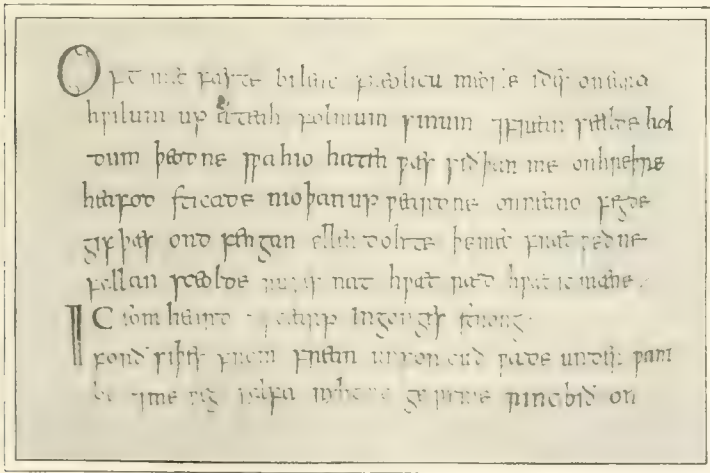 Oft mec fæste bileac freolicu meoƿle ides on earce
hƿilum up ateah folmum sinum ⁊ frean sealde hol
dum þeodne sƿa hio haten ƿæs siðþan me on hreþre
heafod sticade nioþan up ƿeardne on nearo fegde
gif þæs ond fengan ellen dohte þe mec frætƿedne
fyllan sceolde ruƿes nat hƿæt ræd hƿæt ic mæne.
IC eom heard ⁊ scearp ingonges strong.
forð siþes from frean unforcuð ƿade under ƿam
be ⁊ me ƿeg sylfa ryhtne geryme rinc bið on